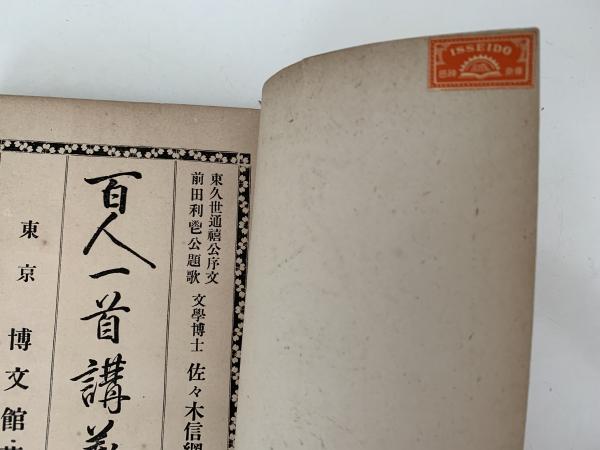 ISSEIDO
東京 神田
東久世通禧公序文
前田利鬯公題歌
文學博士 佐々木信綱
百人一首講義
東京 博文館